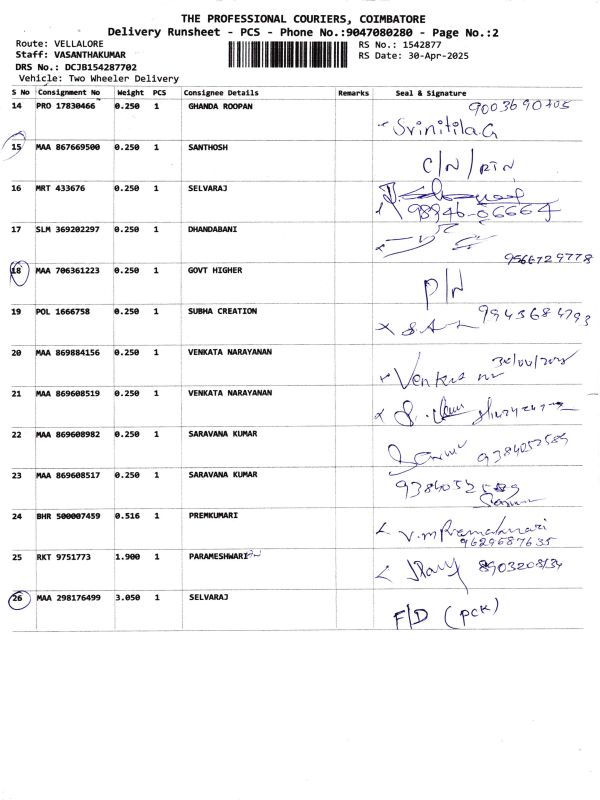 THE PROFESSIONAL COURIERS, COIMBATORE
Delivery Runsheet - PCS - Phone No.:9047080280 - Page No.:2
Route: VELLALORE
RS No.: 1542877
Staff: VASANTHAKUMAR
RS Date: 30-Apr-2025
DRS No.: DCJB154287702
Vehicle: Two Wheeler Delivery
S No Consignment No Weight PCS Consignee Details Remarks Seal & Signature
14 PRO 17830466 0.250 1 GHANDA ROOPAN
Srinitila.G
15 MAA 867669500 0.250 1 SANTHOSH
C/N/RTN
16 MRT 433676 0.250 1 SELVARAJ
98946-06664
17 SLM 369202297 0.250 1 DHANDABANI
9566729778
18 MAA 706361223 0.250 1 GOVT HIGHER
P/N
19 POL 1666758 0.250 1 SUBHA CREATION
9943684793
20 MAA 869884156 0.250 1 VENKATA NARAYANAN
21 MAA 869608519 0.250 1 VENKATA NARAYANAN
22 MAA 869608982 0.250 1 SARAVANA KUMAR
9384052589
23 MAA 869608517 0.250 1 SARAVANA KUMAR
9384052589
24 BHR 500007459 0.516 1 PREMKUMARI
9629687635
25 RKT 9751773 1.900 1 PARAMESHWARI
26 MAA 298176499 3.050 1 SELVARAJ
F/D (PCK)